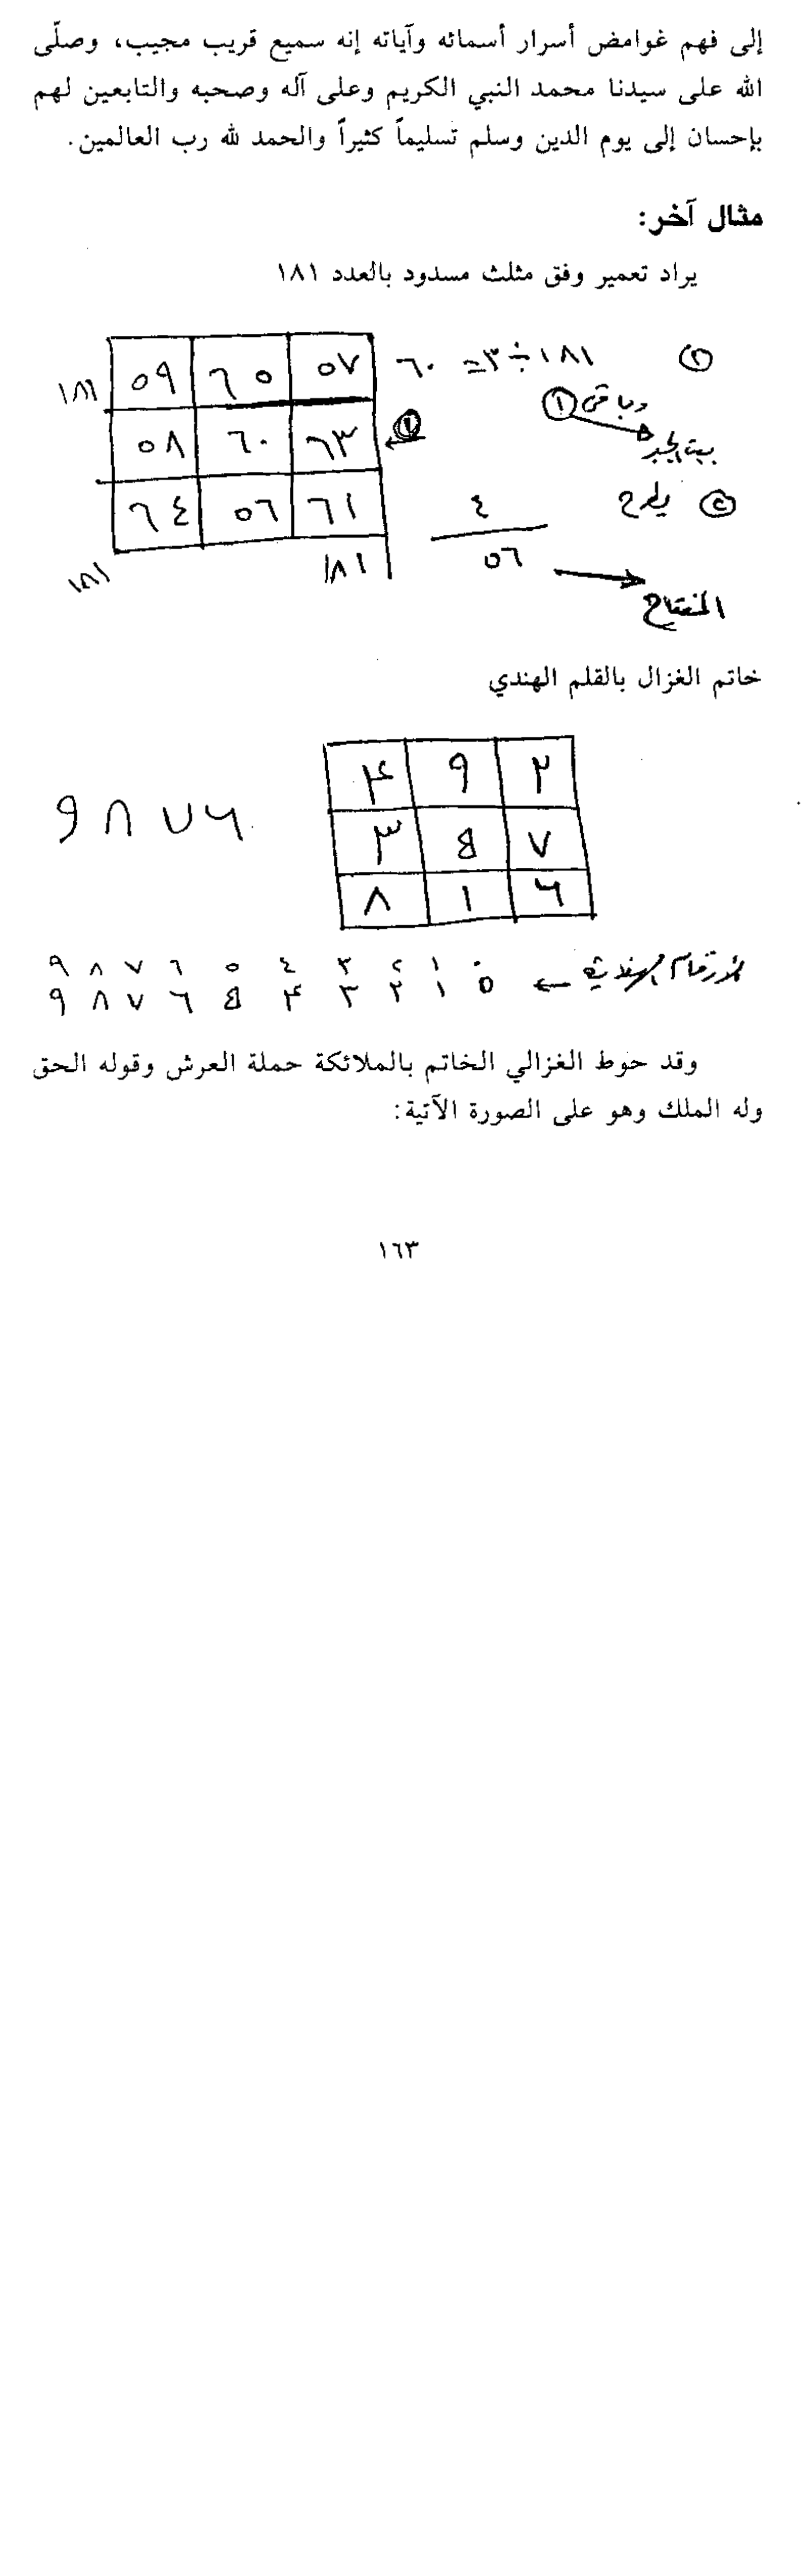 إلى فهم غوامض أسرار أسمائه وآياته إنه سميع قريب مجيب، وصلّى
الله على سيدنا محمد النبي الكريم وعلى آله وصحبه والتابعين لهم
بإحسان إلى يوم الدين وسلم تسليماً كثيراً والحمد لله رب العالمين.
مثال آخر:
يراد تعمير وفق مثلث مسدود بالعدد ١٨١
١٨١ ÷ ٣ = ٦٠
وباقي ١
بيت الجبر
يطرح ٤
٥٦
المفتاح
٥٩ ٦٥ ٥٧
١٨١
٥٨ ٦٠ ٦٣
١
٦٤ ٥٦ ٦١
١٨١ ١٨١
خاتم الغزال بالقلم الهندي
۴ ٩ ٢
٣ ٧
٨ ١ ۶
٩ ٨ ٧ ۶
الأرقام الهندية ←
٩ ٨ ٧ ٦ ٥ ٤ ٣ ٢ ١ ٠
وقد حوط الغزالي الخاتم بالملائكة حملة العرش وقوله الحق
وله الملك وهو على الصورة الآتية:
١٦٣